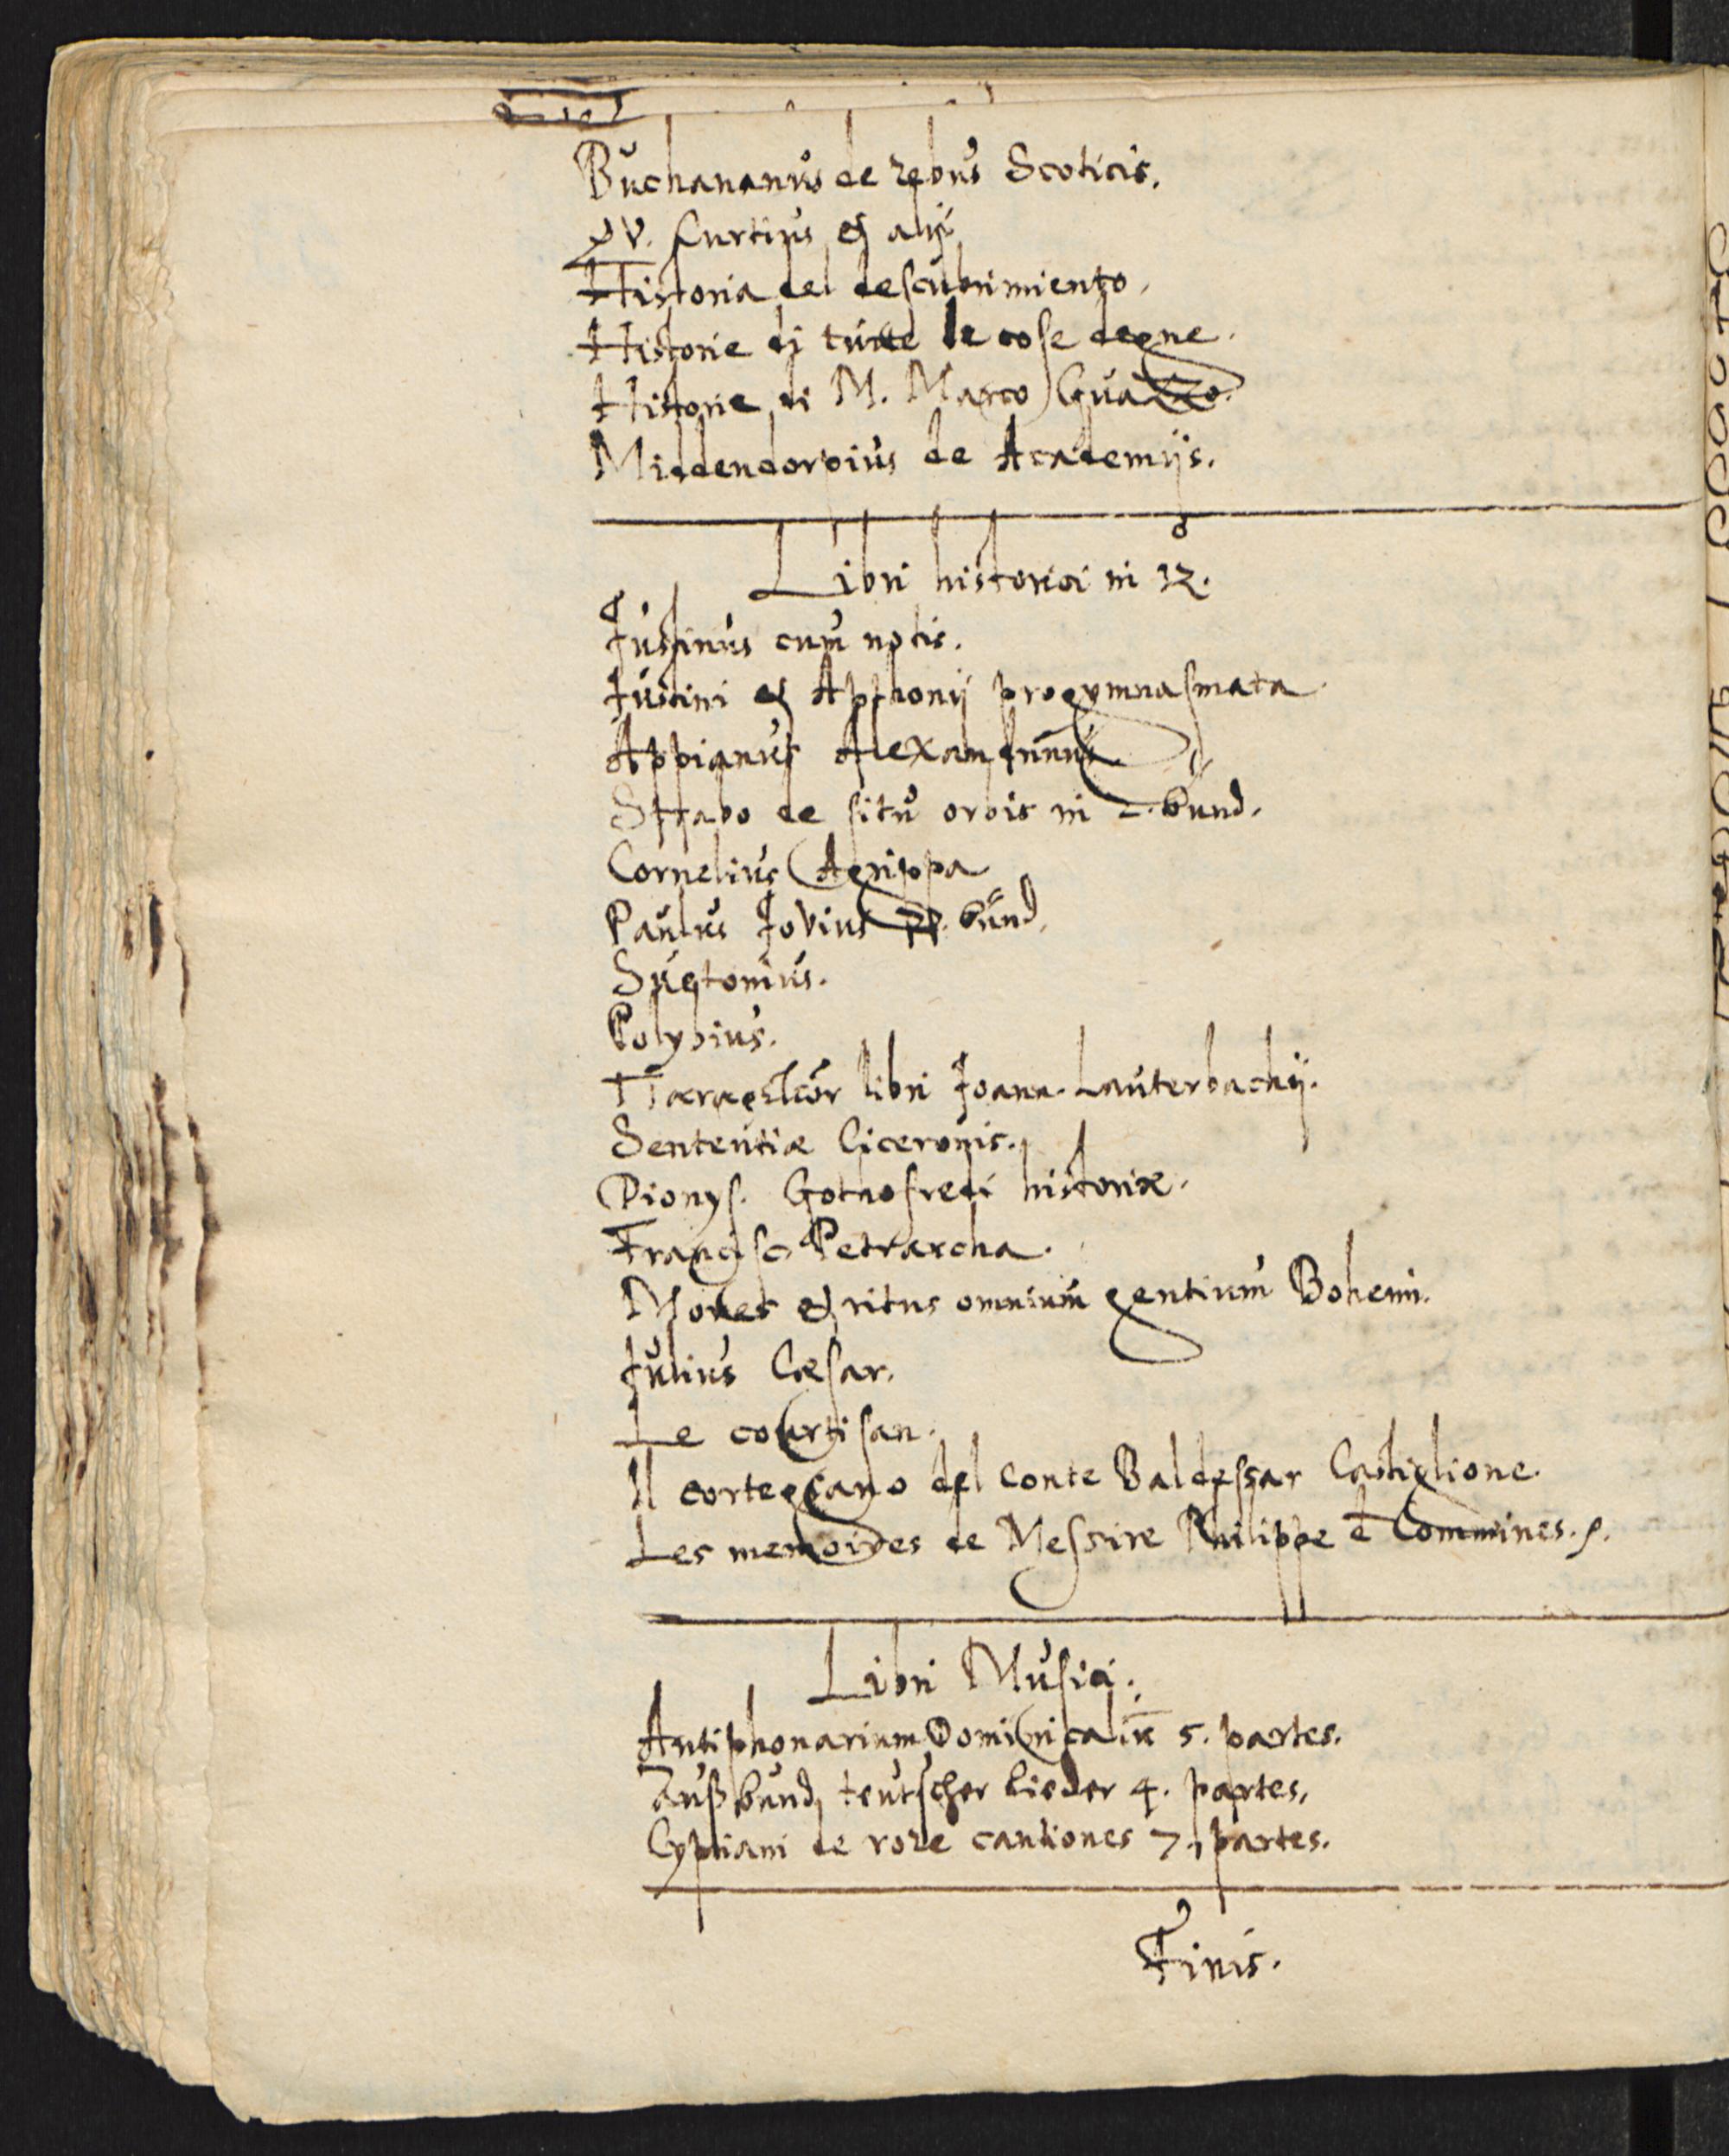 Buchananus de rebus Scoticis.
QV. Curtius et alij
Historia del descubrimiento.
Historie di tutte le cose degne.
Historie di M. Marco Guazzo.
Middendorpius de Academijs.
Libri historici in 12.
Justinus cum notis.
Justini et Apthonij progymnasmata
Appianus Alexandrinus
Strabo de situ orbis in 2. bund.
Cornelius Agrippa
Paulus Jovius bünd.
Suetonius.
Polybius.
libri Joann. Lauterbachij.
Sententiæ Ciceronis.
Dionys. Gothofredi historiæ.
Francisc Petrarcha.
Mores et ritus omnium gentium Bohemi.
Julius Cæsar.
Le courtisan.
Il cortegiano del Conte Baldessar Castiglione.
Les memoires de Messire Philippe de Commines.
Libri Musici.
Antiphonarium Dominicaliu 5. partes.
Außbund teutscher lieder 4. partes.
Cypriani de rore cantiones 7. partes.
Finis.